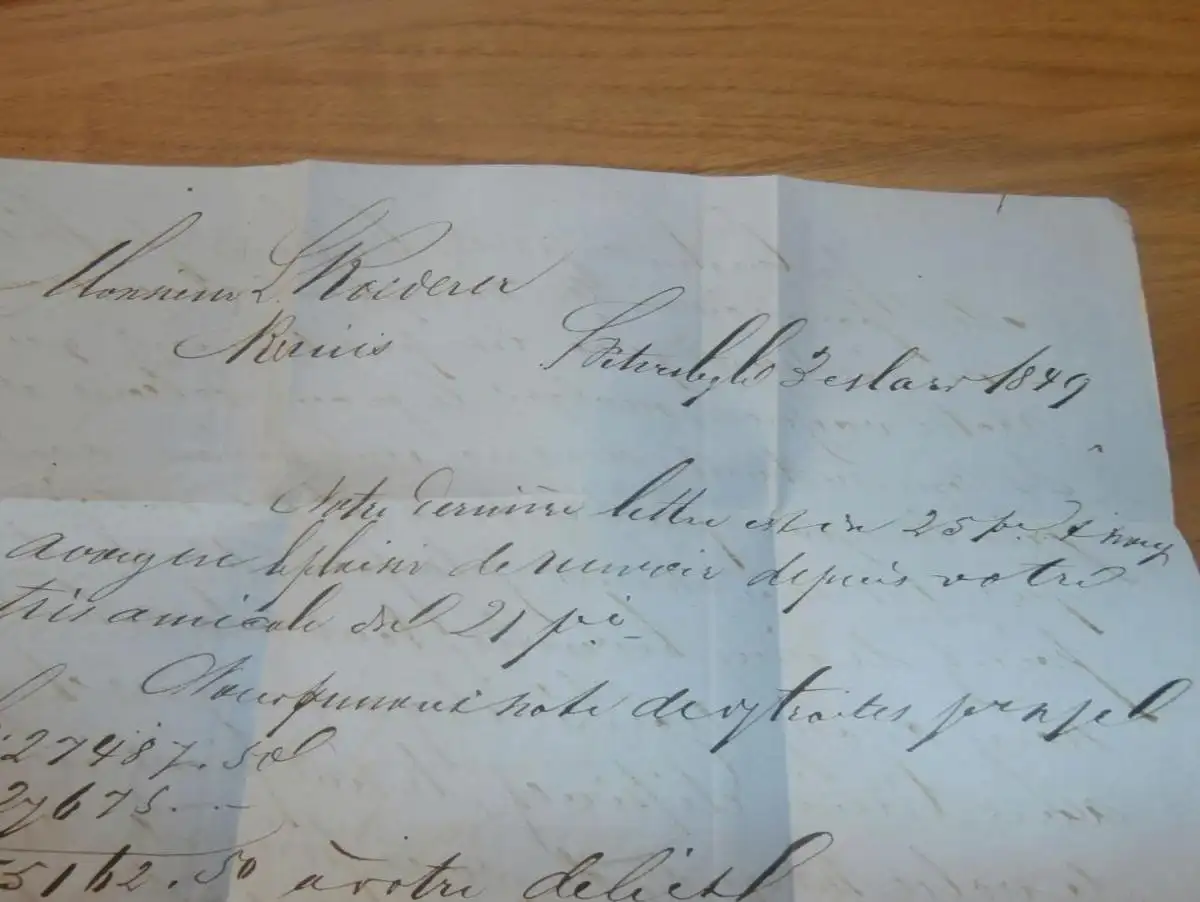 Monsieur L. Roederer
Reims
St Petersbg le 3 Mars 1849
Notre dernière lettre est du 25 pé & nous
avons eu le plaisir de recevoir depuis votre
très amicale du 21 pé
Nous prenons note de vos traites
27487.50
27675.--
55162.50 à votre débit